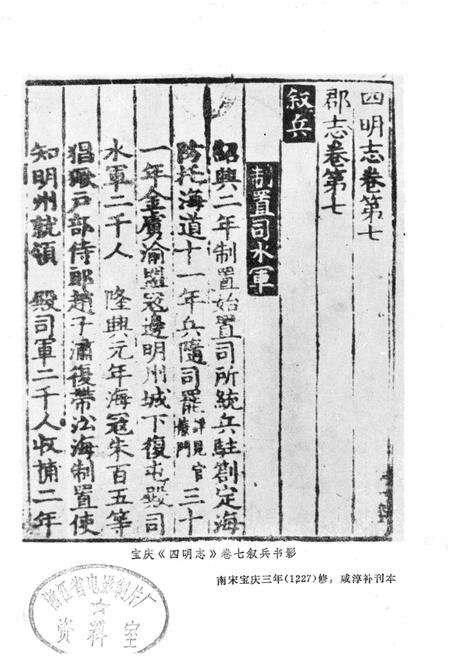 四明志卷第七
郡志卷第七
叙兵
制置司水軍
紹興二年制置始置司所統兵駐劄定海
防托海道十一年兵隨司罷詳見官廨門三十
一年金虜渝盟冦邊明州城下復屯殿司
水軍二千人 隆興元年海冦朱百五等
猖獗戸部侍郎趙子潚復帶沿海制置使
知明州就領 殿司軍二千人收捕二年
宝庆《四明志》卷七叙兵书影
南宋宝庆三年(1227)修，咸淳补刊本
浙江省电影制片厂
资料室